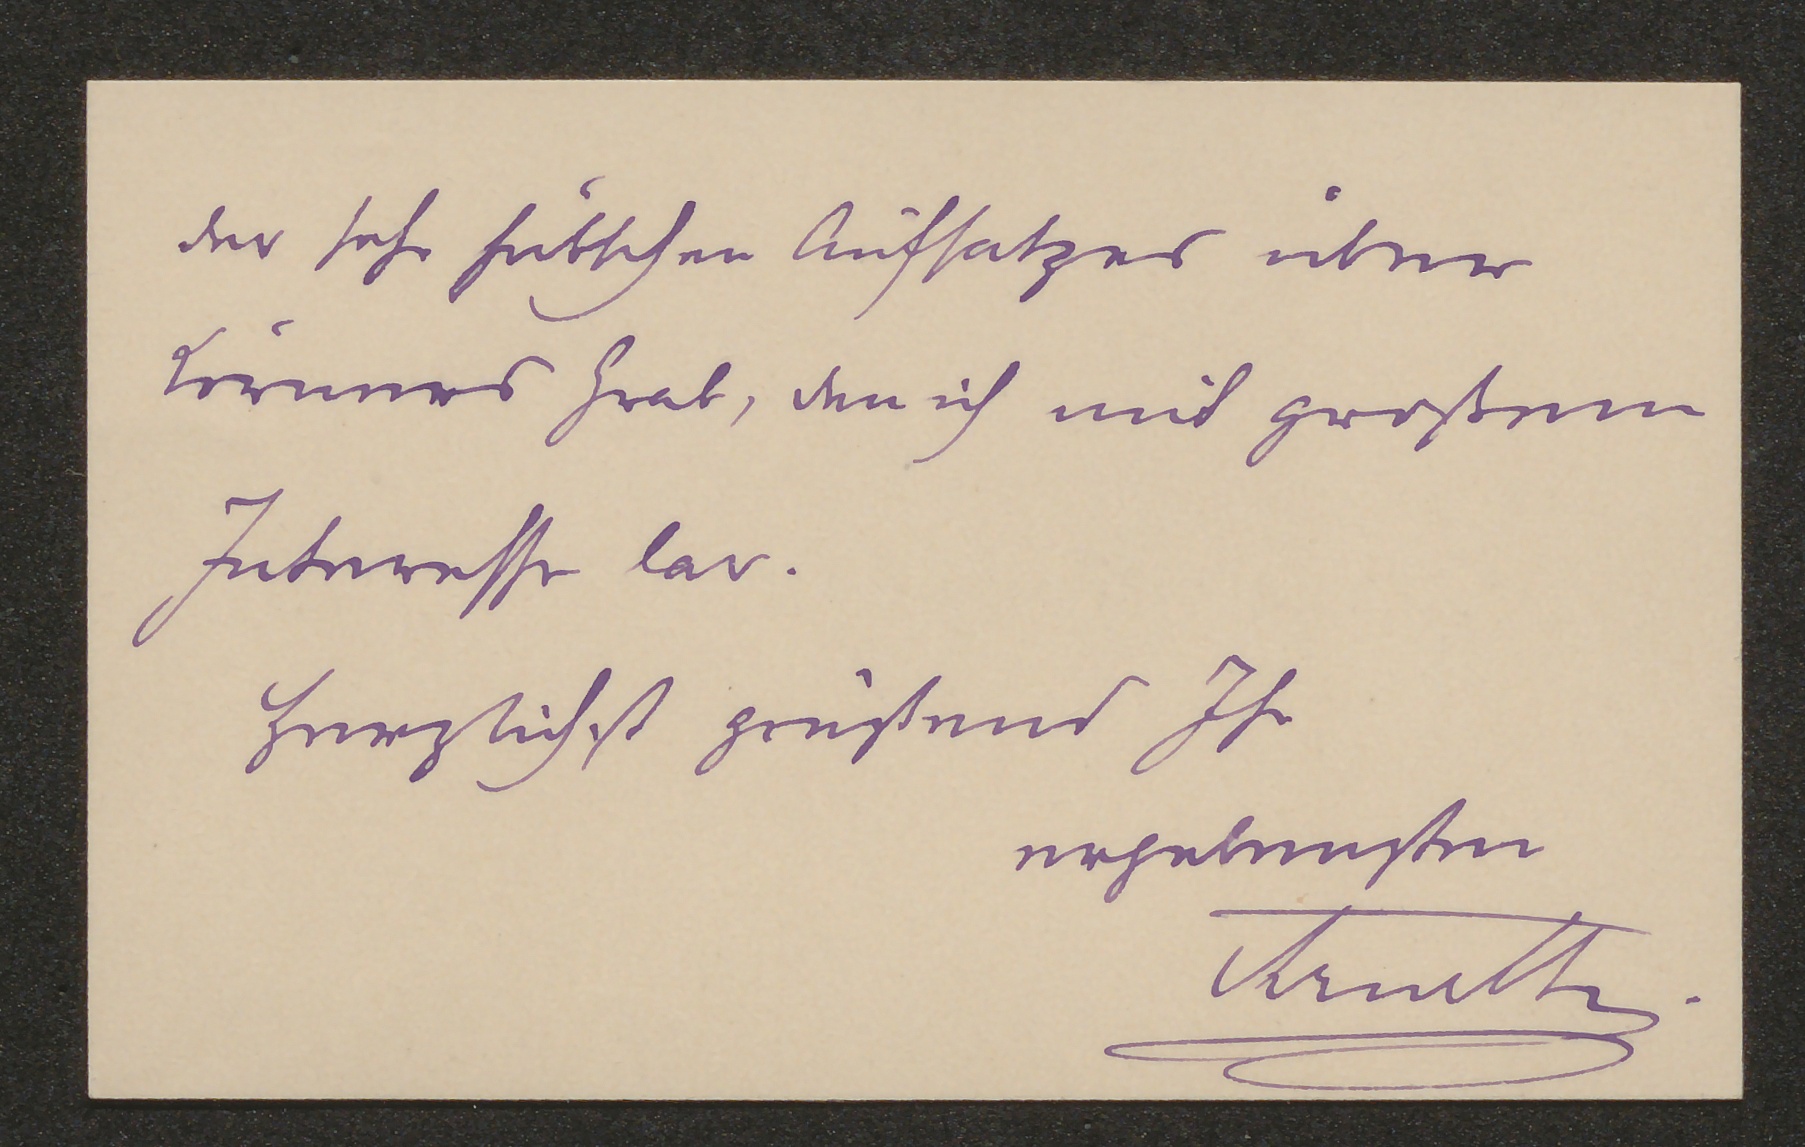 des sehr hübschen Aufsatzes über
Körners Grab, den ich mit großem
Interesse las.
Herzlichst grüßend Ihr
ergebensten
Arneth.